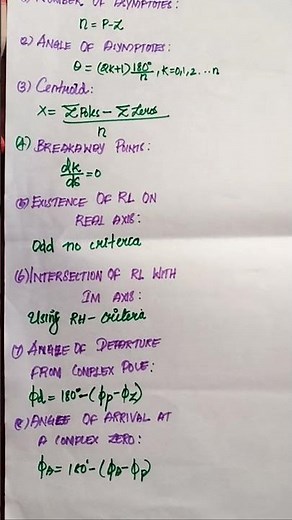 (1) NUMBER OF ASYMPTOTES:
n = P-Z
(2) ANGLE OF ASYMPTOTES:
θ = (2k+1) 180°/n , k=0,1,2...n
(3) Centroid:
X = Σ Poles - Σ Zeros / n
(4) BREAKAWAY POINTS:
dk/ds = 0
(5) EXISTENCE OF RL ON
REAL AXIS:
Odd no criterea
(6) INTERSECTION OF RL WITH
IM AXIS:
Using RH-criteria
(7) ANGLE OF DEPARTURE
FROM COMPLEX POLE:
ϕd = 180°-(ϕp-ϕz)
(8) ANGLE OF ARRIVAL AT
A COMPLEX ZERO:
ϕA = 180°-(ϕz-ϕp)